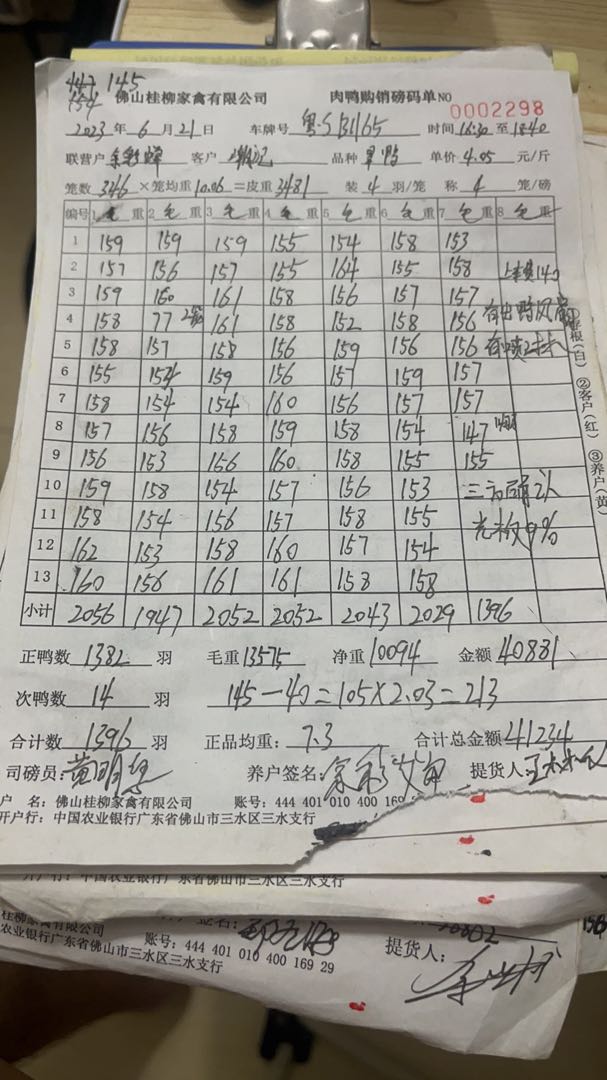 145
佛山桂柳家禽有限公司 肉鸭购销磅码单 NO 0002298
2023年6月21日 车牌号 粤 时间 16:30 至 18:40
联营户 客户 品种 单价 4.05 元/斤
笼数 346 ×笼均重 10.06 =皮重 3481 装 4 羽/笼 称 4 笼/磅
编号 1 毛 重 2 毛 重 3 毛 重 4 毛 重 5 毛 重 6 毛 重 7 毛 重 8 毛 重
1 159 159 159 155 154 158 153
2 157 156 157 155 164 155 158
3 159 160 161 158 156 157 157
4 158 77 161 158 152 158 156
5 158 157 158 156 159 156 156
6 155 154 159 156 157 159 157
7 158 154 154 160 156 157 157
8 157 156 158 159 158 154 147
9 156 153 156 160 158 155 155
10 159 158 154 157 156 153
11 158 154 156 157 158 155
12 162 153 158 160 157 154
13 160 156 161 161 158 158
小计 2056 1947 2052 2052 2043 2029 1396
正鸭数 1382 羽 毛重 13575 净重 10094 金额 40881
次鸭数 14 羽 145-40=105×2.03=213
合计数 1396 羽 正品均重: 7.3 合计总金额 41234
司磅员: 养户签名: 提货人:
户 名: 佛山桂柳家禽有限公司 账号: 444 401 010 400 169
开户行: 中国农业银行广东省佛山市三水区三水支行
②客户(红)
③养户(黄)
中国农业银行广东省佛山市三水区三水支行
桂柳家禽有限公司 账号: 444 401 010 400 169 29 提货人:
农业银行广东省佛山市三水区三水支行